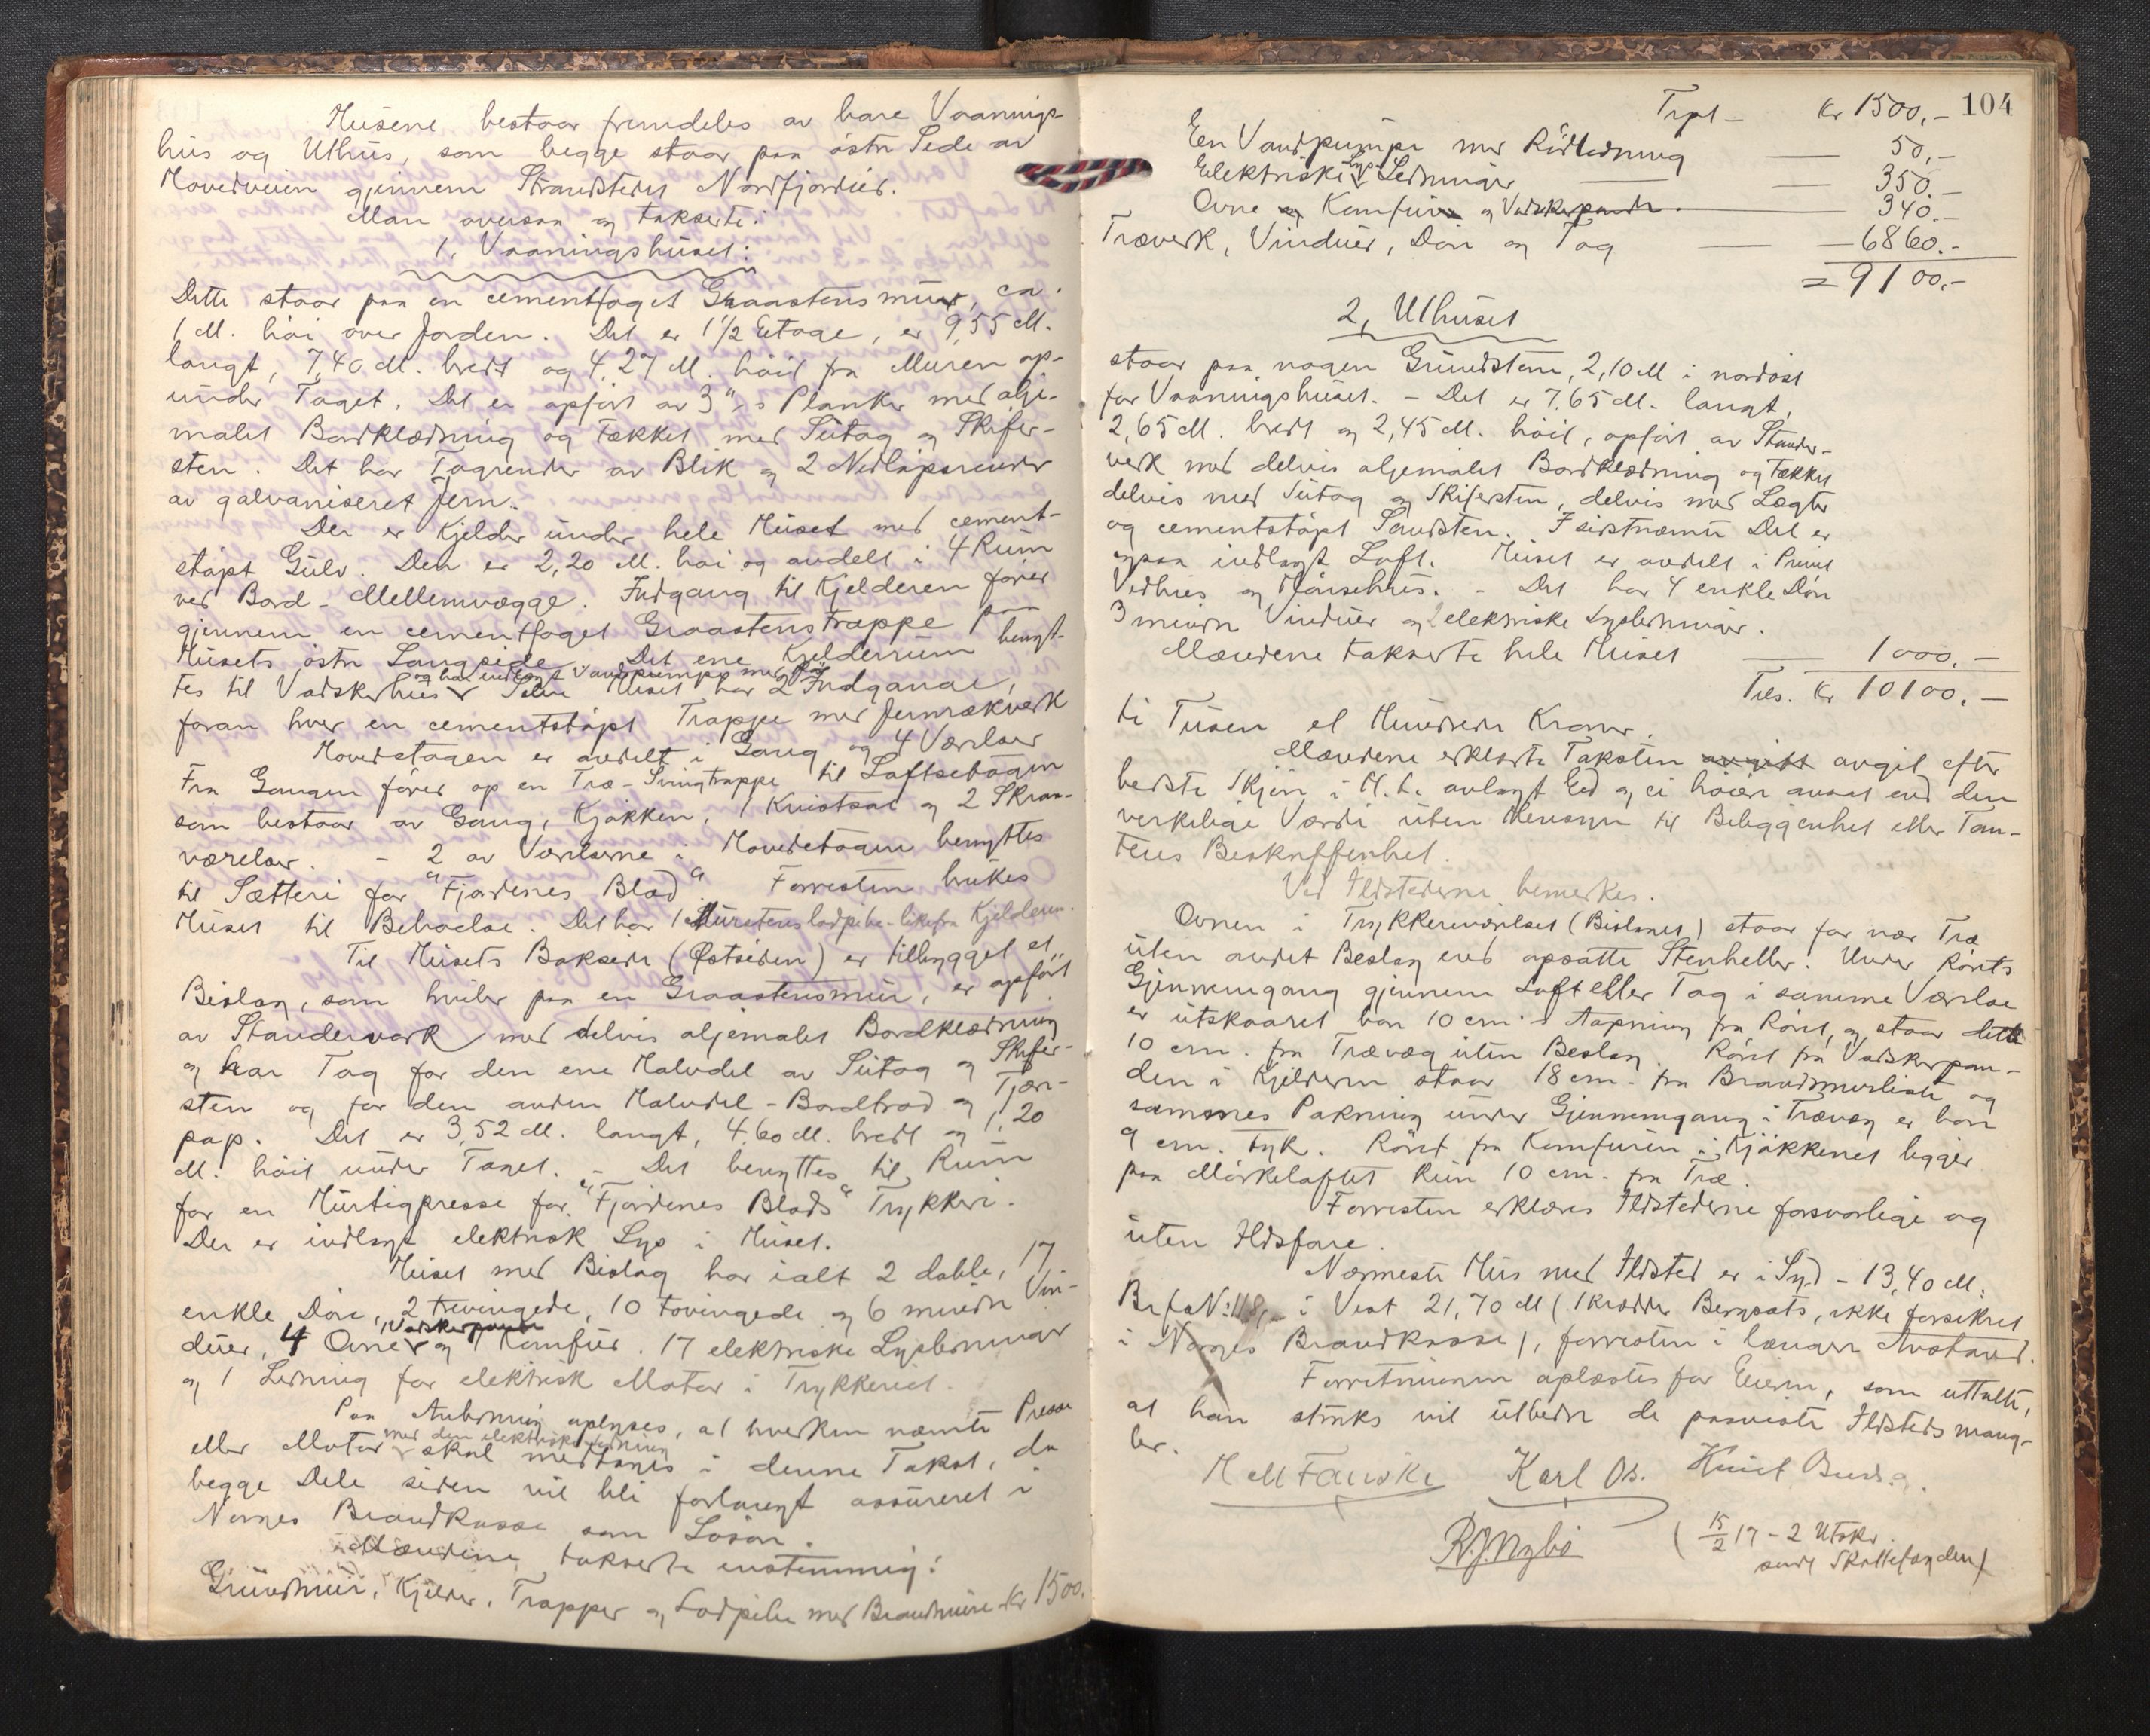 Husene bestaar fremdeles av bare Vaanings-
hus og Uthus, som begge staar paa østre Side av
Hovedveien gjennem Strandstedet Nordfjordeid.
Man oversaa og takserte:
1. Vaaningshuset:
Dette staar paa en cementfuget Graastensmur, ca.
1 M. høi over Jorden. Det er 1 1/2 Etage, er 9,55 M.
langt, 7,40 M. bredt og 4,27 M. høit fra Muren op-
under Taget. Det er opført av 3"s Planker med olje-
malet Bordklædning og tækket med Sutag og Skifer-
sten. Det har Tagrender av Blik og 2 Nedløpsrender
av galvaniseret Jern.
Der er Kjelder under hele Huset med cement-
støpt Gulv. Den er 2,20 M. høi og avdelt i 4 Rum
ved Bord-Mellemvægge. Indgang til Kjelderen fører
gjennem en cementfuget Graastenstrappe paa
Husets østre Langside. Det ene Kjelderrum benyt-
og har indlagt Vandpumpe med Rør
tes til Vadskerhus. Selve Huset har 2 Indgange,
foran hver en cementstøpt Trappe med Jernrækverk
Hovedetagen er avdelt i Gang og 4 Værelser
Fra Gangen fører op en Træ-Svingtrappe til Loftsetagen
som bestaar av Gang, Kjøkken, 1 Kvistsal og 2 Skraa-
værelser. - 2 av Værelserne i Hovedetagen benyttes
til Sætteri for "Fjordenes Blad" Forresten brukes
Huset til Beboelse. Det har 1 Murstens ladpibe like fra Kjelderen.
Til Husets Bakside (Østsiden) er tilbygget et
Bislag, som hviler paa en Graastensmur, er opført
av Standerverk med delvis oljemalet Bordklædning
og har Tag for den ene Halvdel av Sutag og Skifer-
sten og for den anden Halvdel - Bordtrod og Tjære-
pap. Det er 3,52 M. langt, 4,60 M. bredt og 1,20
M. høit under Taget. - Det benyttes til Rum
for en Hurtigpresse for "Fjordenes Blads" Trykkeri.
Der er indlagt elektrisk Lys i Huset.
Huset med Bislag har ialt 2 doble, 17
enkle Døre, 2 trevingede, 10 tovingede og 6 mindre Vin-
1 Vadskerpande
duer, 4 Ovne og 1 Komfur. 17 elektriske Lysledninger
og 1 Ledning for elektrisk Motor i Trykkeriet.
Paa Anledning oplyses, at hverken nævnte Presse
med den elektriske Ledning
eller Motor skal medtages i denne Takst, da
begge Dele siden vil bli forlangt assureret i
Norges Brandkasse som Løsøre.
Mændene takserte enstemmig:
Grundmur, Kjelder, Trapper og Ladpibe med Brandmure - Kr 1500.
104
Trpt - Kr 1500,-
En Vandpumpe med Rørledning — 50,-
Lys
Elektriske Ledninger — 350.-
Ovne og Komfur og Vadskerpande. — 340.-
Træverk, Vinduer, Døre og Tag — 6860.-
= 9100,-
2, Uthuset
staar paa nogen Grundstene, 2,10 M i nordøst
for Vaaningshuset. - Det er 7,65 M. langt,
2,65 M. bredt og 2,45 M. høit, opført av Stander-
verk med delvis oljemalet Bordklædning og tækket
delvis med Sutag og Skifersten, delvis med Lægter
og cementstøpt Tagsten. I sidstnævnte Del er
ogsaa indlagt Loft. Huset er avdelt i Privet
Vedhus og Hønsehus. - Det har 4 enkle Døre
3 mindre Vinduer og 2 elektriske Lysledninger.
Mændene takserte hele Huset — 1000,-
Tils. Kr 10100,-
ti Tusen et Hundrede Kroner.
Mændene erklærte Taksten avgitt avgit efter
bedste Skjøn i H.t. avlagt Ed og ei høiere ansat end den
verkelige Værdi uten Hensyn til Beliggenhet eller Tom-
tens Beskaffenhet.
Ved Ildstederne bemerkes.
Ovnen i Trykkeriværelset (Bislaget) staar for nær Træ
uten andet Beslag end opsatte Stenheller. Under Rørets
Gjennemgang gjennem Loft eller Tag i samme Værelse
er utskaaret bare 10 cm.s Aapning fra Røret, og staar dette
10 cm. fra Trævæg uten Beslag. Røret fra Vadskerpan-
den i Kjelderen staar 18 cm. fra Brandmurliste og
sammes Pakning under Gjennemgang i Trævæg er bare
9 cm. tyk. Røret fra Komfuren i Kjøkkenet ligger
paa Mørkeloftet kun 10 cm. fra Træ.
Forresten erklæres Ildstederne forsvarlige og
uten Ildsfare.
Nærmeste Hus med Ildsted er i Syd - 13,40 M.
Br.fa No: 118, - i Vest 21,70 M (Skrædder Bergsats, ikke forsikret
i Norges Brandkasse), forresten i længere Avstand.
Forretningen oplæstes for Eieren, som uttalte,
at han straks vil utbedre de paaviste Ildsteds mang-
ler.
H M Fauske Karl Os. Knut
R.J. Nybø
(15/2 17 - 2 Utskr.
sendt Skattefogden)